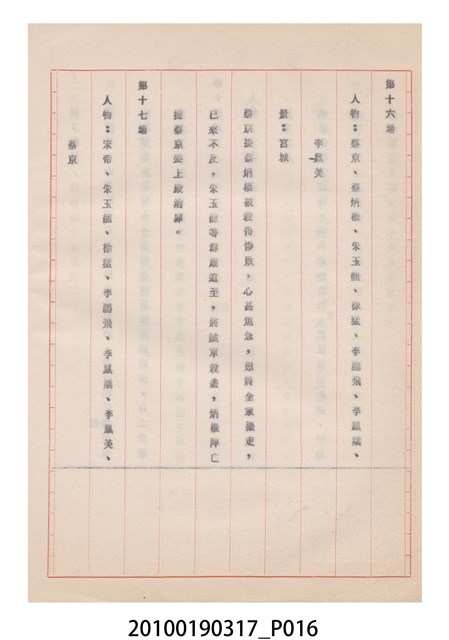 第十六場
人物：蔡京、蔡炳權、朱玉龍、徐猛、李鵬飛、李鳳嬌、
李鳳美
景：宮城
蔡京接蔡炳權被殺得慘敗，心甚焦急，想將全家撤走，
已來不及，朱玉龍等群雄追至，將賊軍殺盡，炳權陣亡
捉蔡京要上殿治罪。
第十七場
人物：宋帝、朱玉龍、徐猛、李鵬飛、李鳳嬌、李鳳美、
蔡京
20100190317_P016